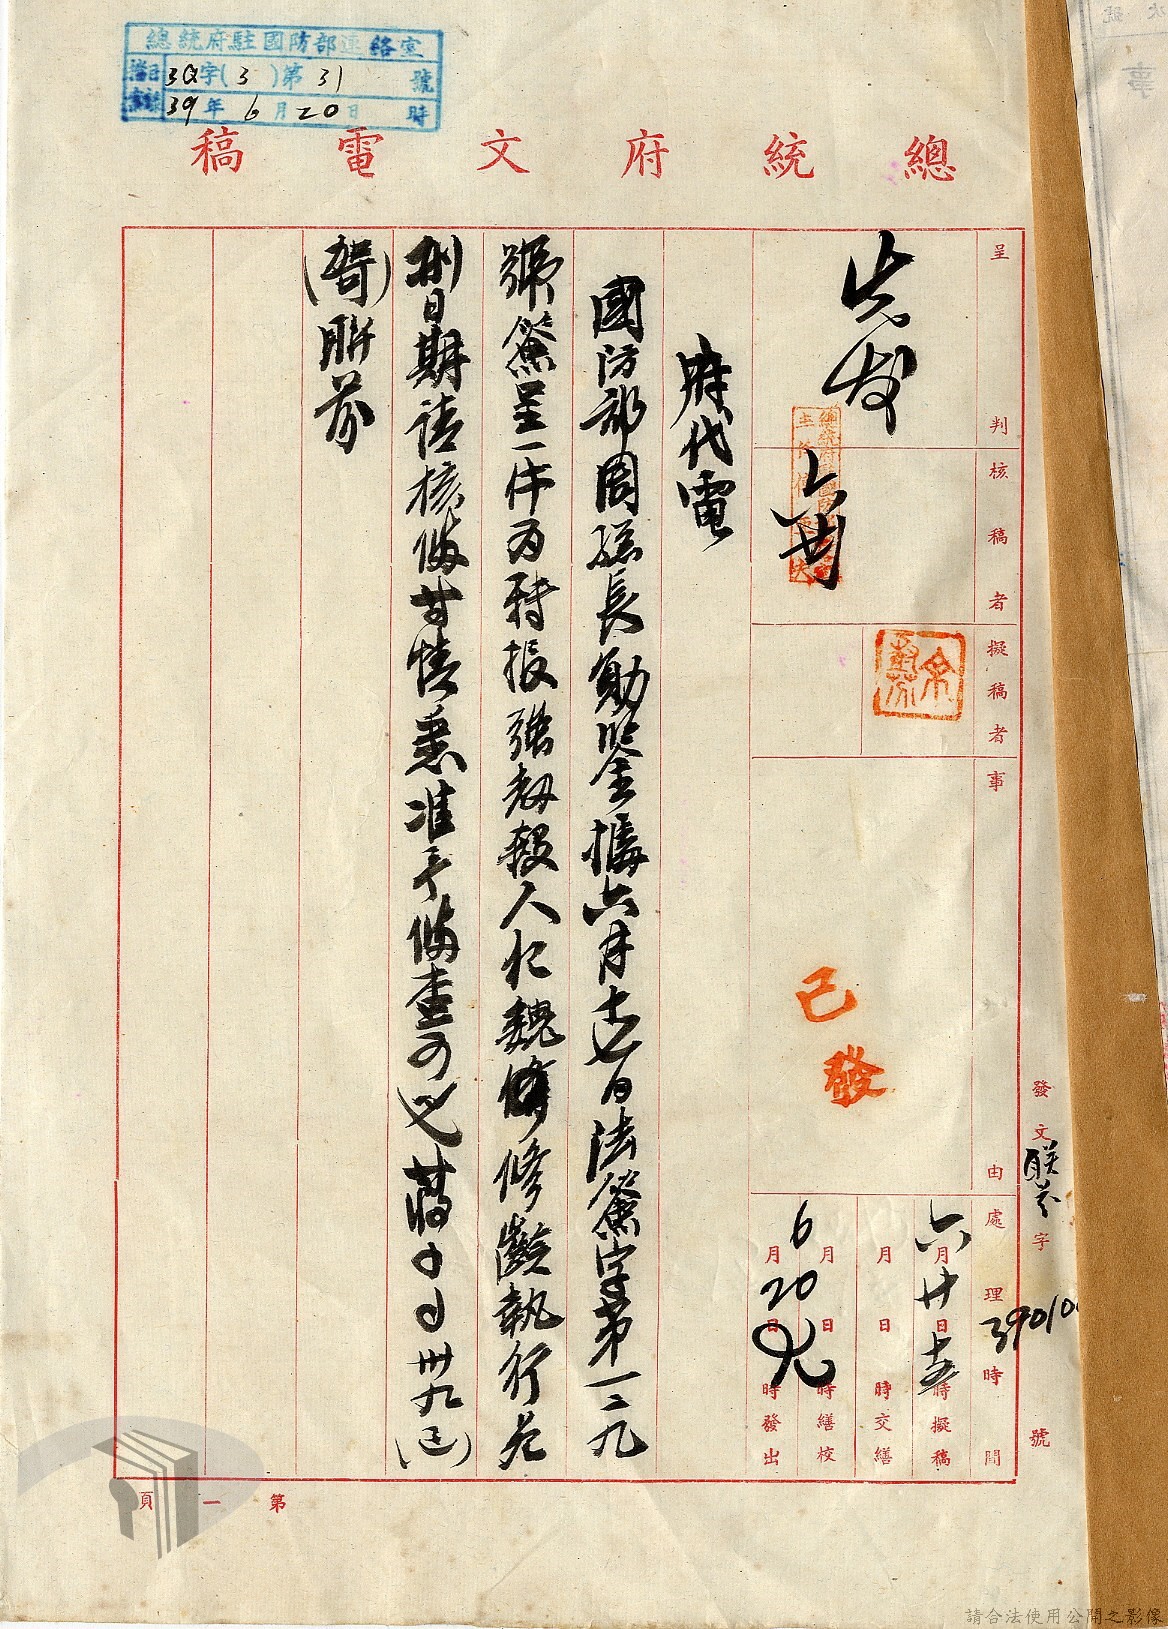 總統府駐國防部連絡室
39字(3)第31號
39年6月20日時
總統府文電稿
呈判
先發
核稿者
擬稿者
事由
已發
發文聯芬字390101號
處理時間
六月廿日十五時擬稿
月日時交繕
月日時繕校
6月20日九時發出
府代電
國防部周總長勛鑒據六月十七日法簽字第一二九
號簽呈一件為轉報強劫殺人犯魏修齡執行死
刑日期請核備等情悉准予備查可也蔣中正卅九(巳)
(哿)聯芬
第一頁
請合法使用公開之影像